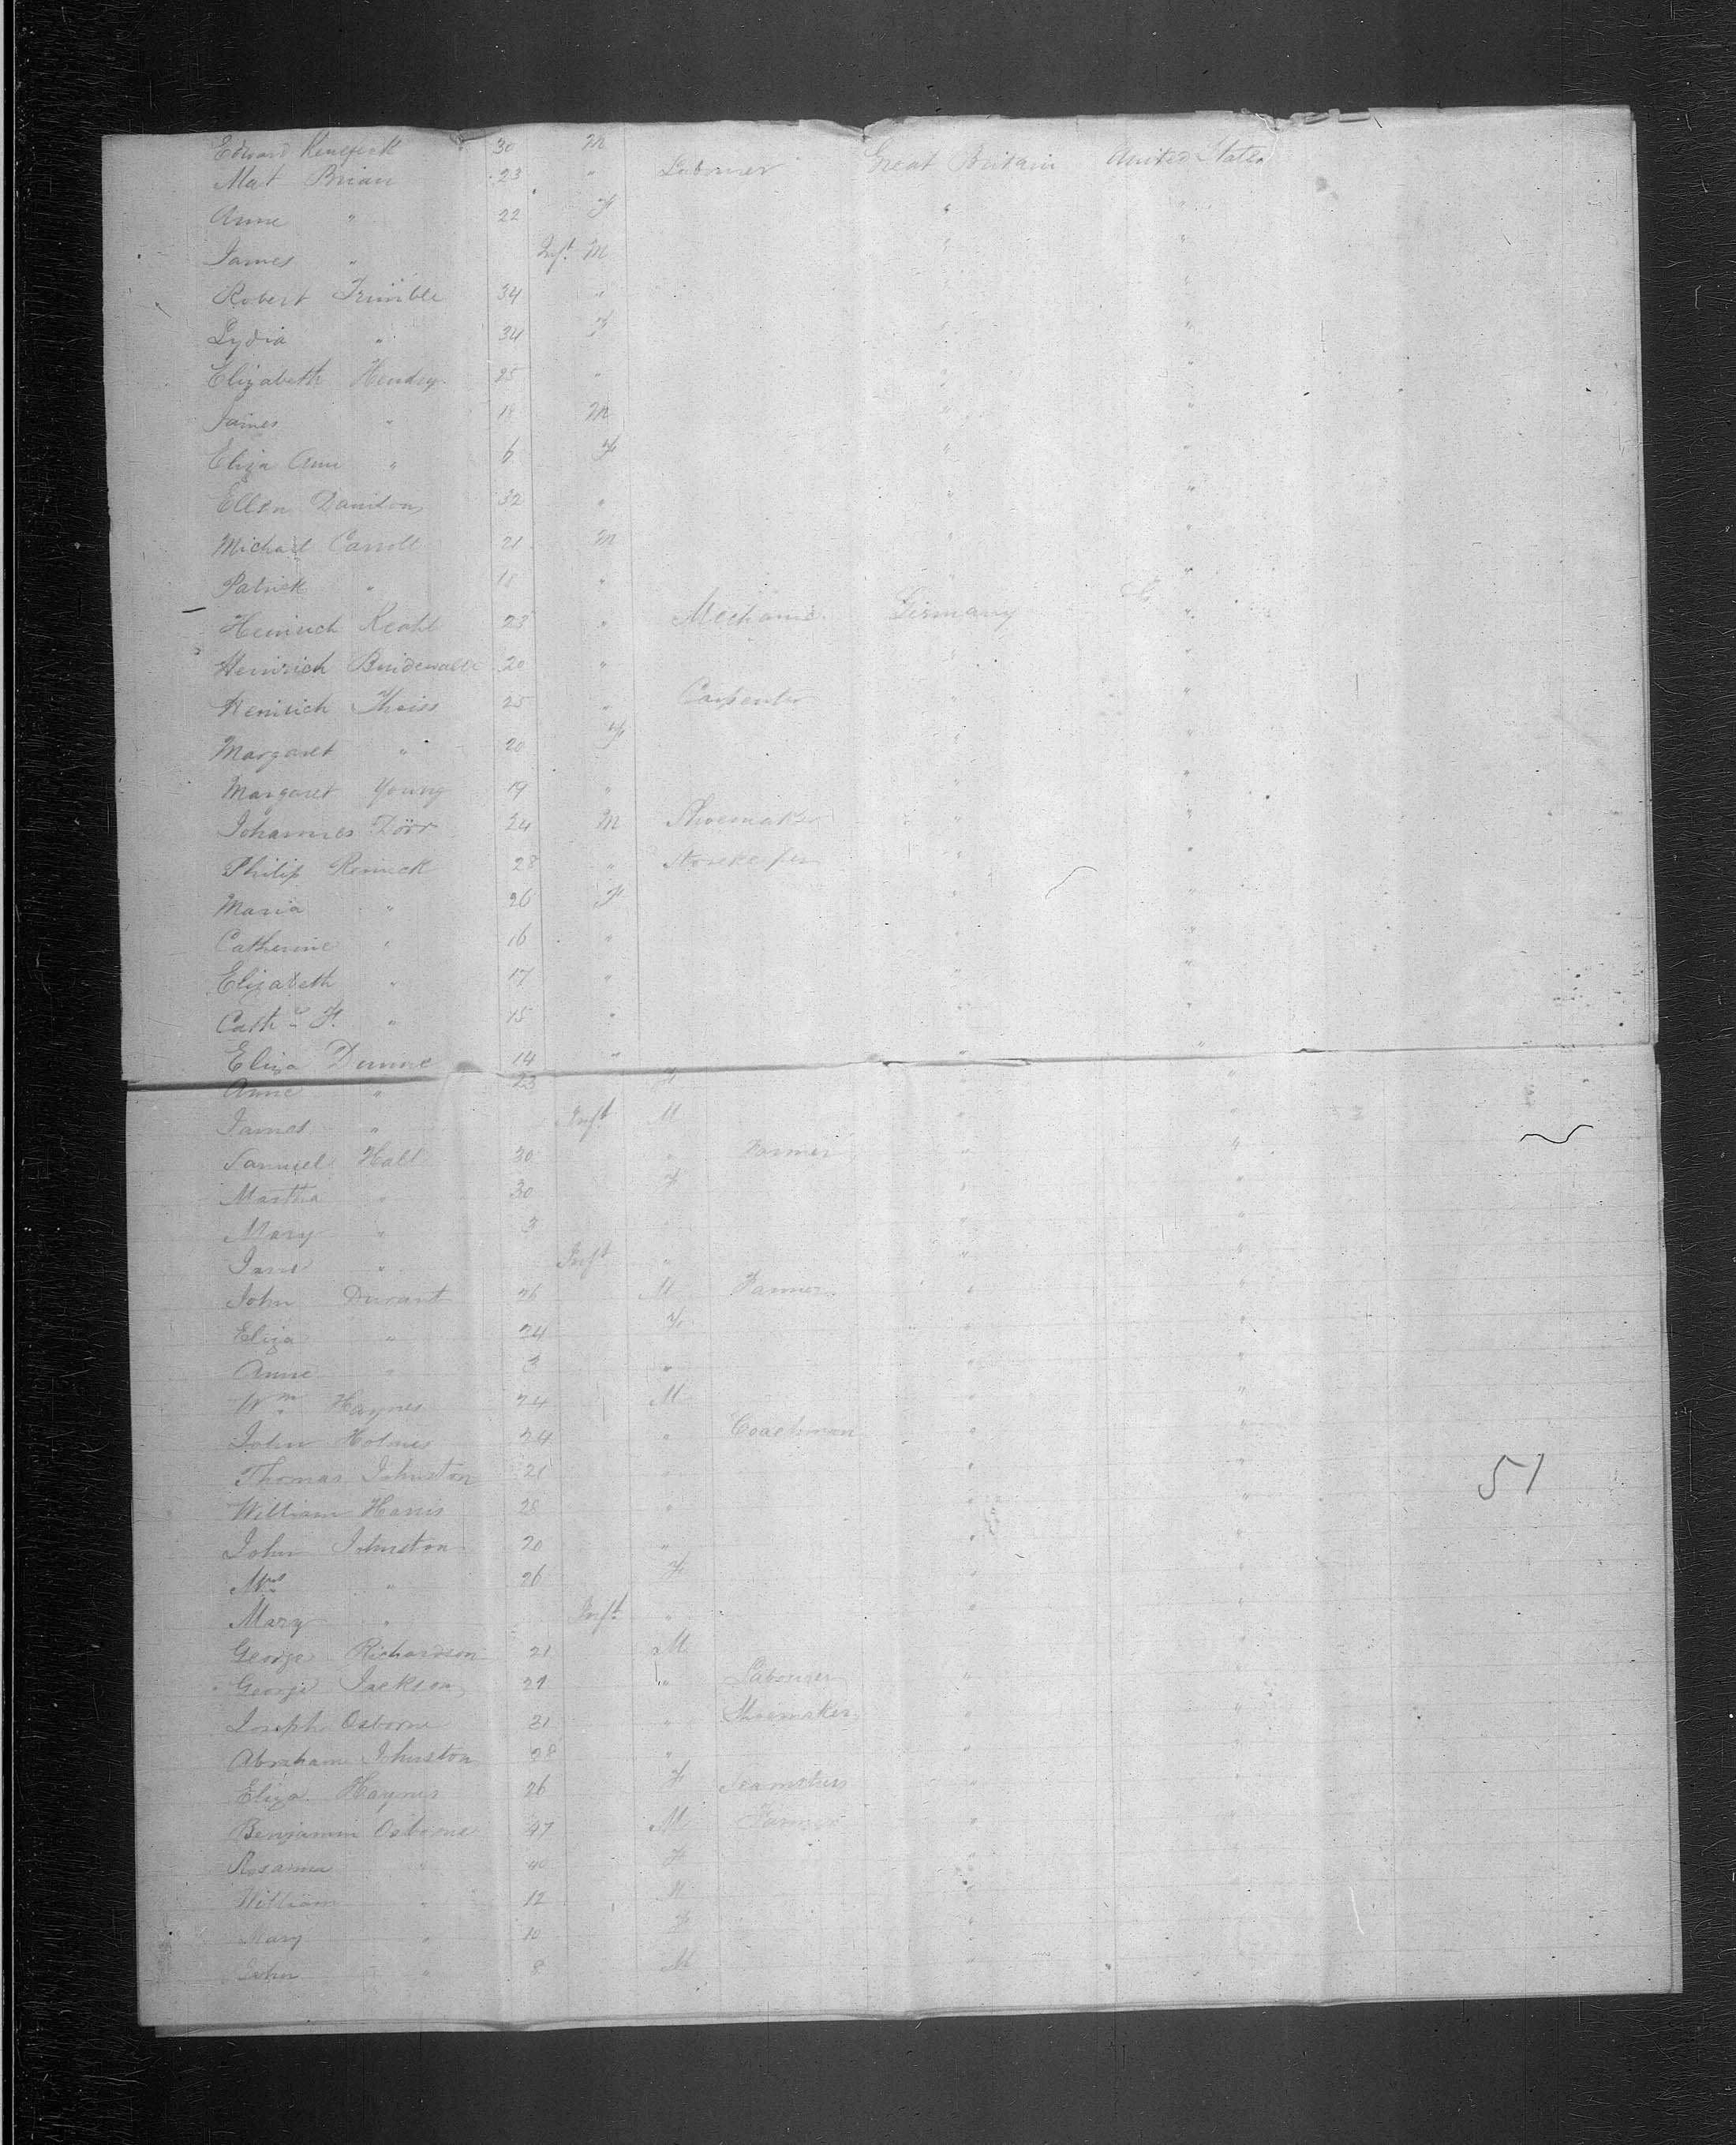 Edward Kenefeck 30 M
Mat Brian 23 " Labourer Great Britain United States
Anne " 22 F " "
James " Inft M " "
Robert Trimble 34 " " "
Lydia " 34 F " "
Elizabeth Hendry 25 " " "
James " 18 M " "
Eliza Ann " 6 F " "
Ellen 32 " " "
Michael Carroll 21 M " "
Patrick " 18 " "
Heinrich 23 " Mechanic Germany "
Heinrich 20 " " "
Heinrich Theiss 25 " Carpenter " "
Margaret " 20 F " "
Margaret Young 19 " " "
Johannes Dörr 24 M Shoemaker " "
Philip Reineck 28 " Storekeeper " "
Maria " 26 F " "
Catherine " 16 " " "
Elizabeth " 17 " " "
Cathe F. " 15 " " "
Eliza 14 " " "
Anne " 23 F " "
James " Inft M " "
Samuel Hall 30 " Farmer " "
Martha " 30 F " "
Mary " 3 " "
Jane " Inft " " "
John Durant 26 M Farmer " "
Eliza " 24 F " "
Anne " 3 " " "
Wm Haynes 24 M " "
John Holmes 24 " Coachman " "
Thomas Johnston 21 " " "
William Harris 28 " " "
John Johnston 20 " " "
Mrs " 26 F " "
Mary " Inft " " "
George Richardson 21 M "
George Jackson " Labourer " "
Joseph Osborne 21 " Shoemaker " "
Abraham Johnston 28 " " "
Eliza Haynes 26 F Seamstress " "
Benjamin Osborne 47 M Farmer " "
Rosanna " 40 F " "
William " 12 M " "
Mary " 10 F "
John " 8 M "
51